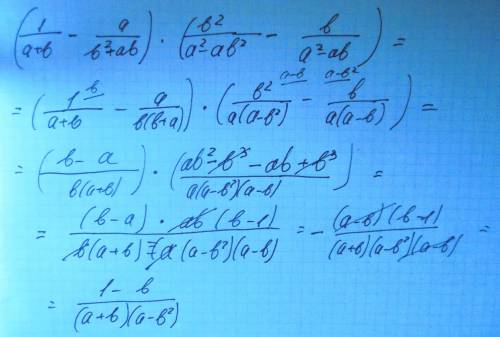 (1/(a+b) - a/(b²+ab)) · (b²/(a²-ab²) - b/(a²-ab)) =
= (1^b/(a+b) - a/(b(b+a))) · (b²^(a-b)/(a(a-b²)) - b^(a-b²)/(a(a-b))) =
= ((b-a)/(b(a+b))) · ((ab²-b³-ab+b³)/(a(a-b²)(a-b))) =
= ((b-a)·ab(b-1))/(b(a+b)·a(a-b²)(a-b)) = -((a-b)(b-1))/((a+b)(a-b²)(a-b)) =
= (1-b)/((a+b)(a-b²))